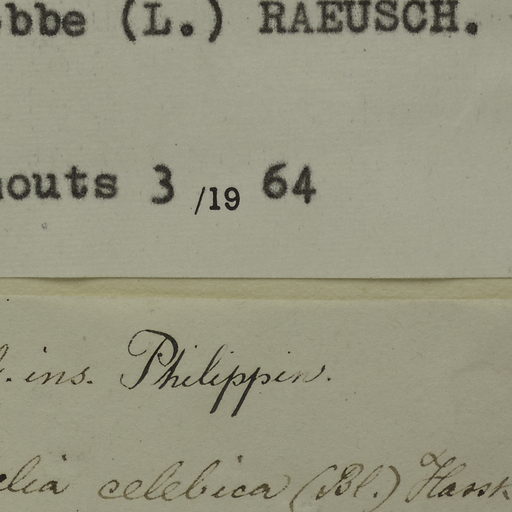 bbe (L.) RAEUSCH.
outs 3 /19 64
. ins. Philippin.
lia celebica (Bl.) Hassk